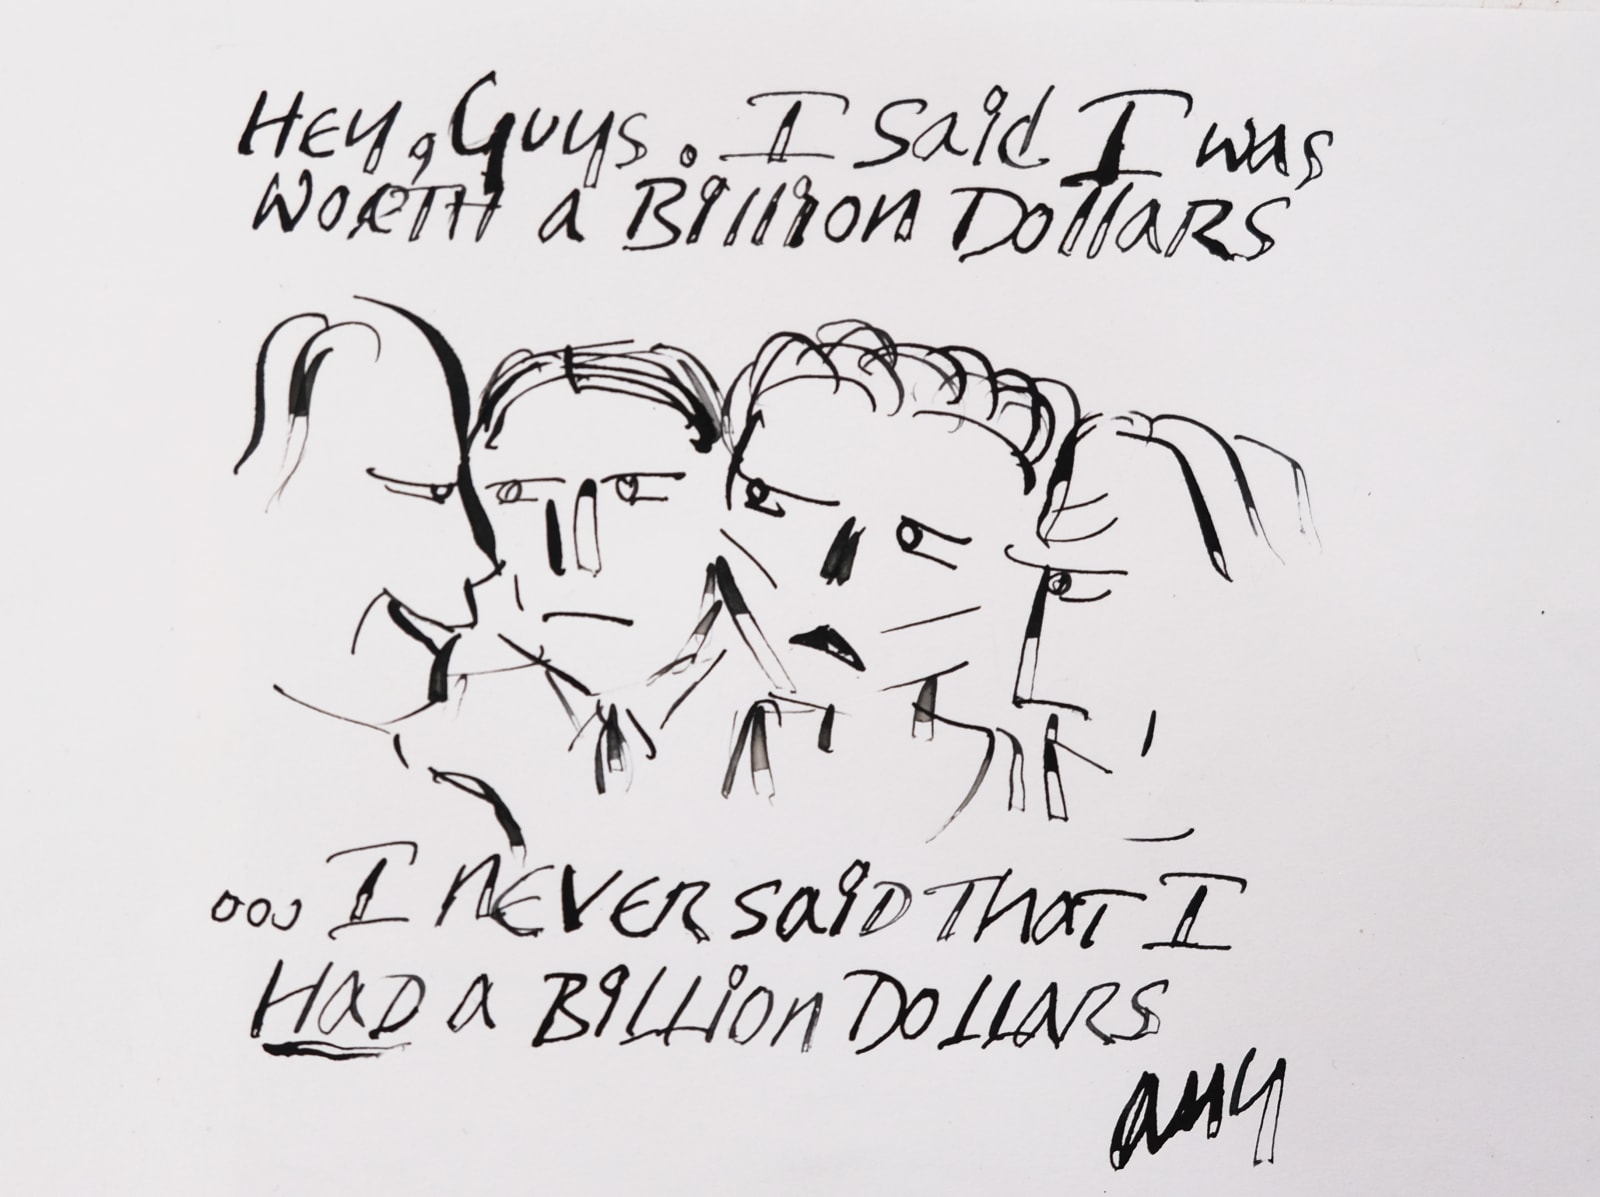 Hey, Guys. I said I was
WORTH a Billion Dollars
... I never said That I
Had a Billion Dollars
amy